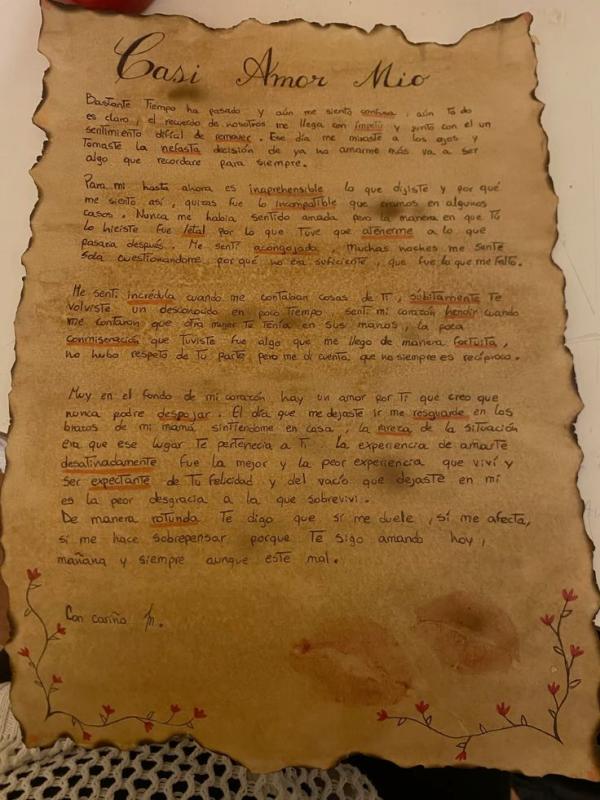 Casi Amor Mio
Bastante Tiempo ha pasado y aún me siento confusa, aún todo
es claro, el recuerdo de nosotros me llega con ímpetu y junto con el un
sentimiento difícil de remover. Ese día me miraste a los ojos y
Tomaste la nefasta decisión de ya no amarme más va a ser
algo que recordare para siempre.
Para mi hasta ahora es inaprehensible lo que dijiste y por qué
me siento así, quizas fue lo incompatible que eramos en algunos
casos. Nunca me había sentido amada pero la manera en que Tú
lo hiciste fue letal por lo que Tuve que atenerme a lo que
pasara después. Me sentí acongojada, Muchas noches me sente
Sola cuestionandome por qué no era suficiente, que fue lo que me falto.
Me sentí incredula cuando me contaban cosas de Ti, súbitamente Te
volviste un desconocido en poco Tiempo, sentí mi corazón hendir cuando
me contaron que otra mujer Te Tenía en sus manos, la poca
conmiseración que tuviste fue algo que me llego de manera fortuita,
no hubo respeto de Tu parte, pero me di cuenta que no siempre es recíproco.
Muy en el fondo de mi corazón hay un amor por Ti que creo que
nunca podre despojar. El día que me dejaste ir me resguarde en los
brazos de mi mamá sintiendome en casa, la rareza de la situación
era que ese lugar Te pertenecía a Ti. La experiencia de amarte
desatinadamente fue la mejor y la peor experiencia que viví y
ser expectante de Tu felicidad y del vacío que dejaste en mí
es la peor desgracia a la que sobreviví.
De manera rotunda Te digo que si me duele, si me afecta,
si me hace sobrepensar porque Te sigo amando hoy,
mañana y siempre aunque este mal.
Con cariño